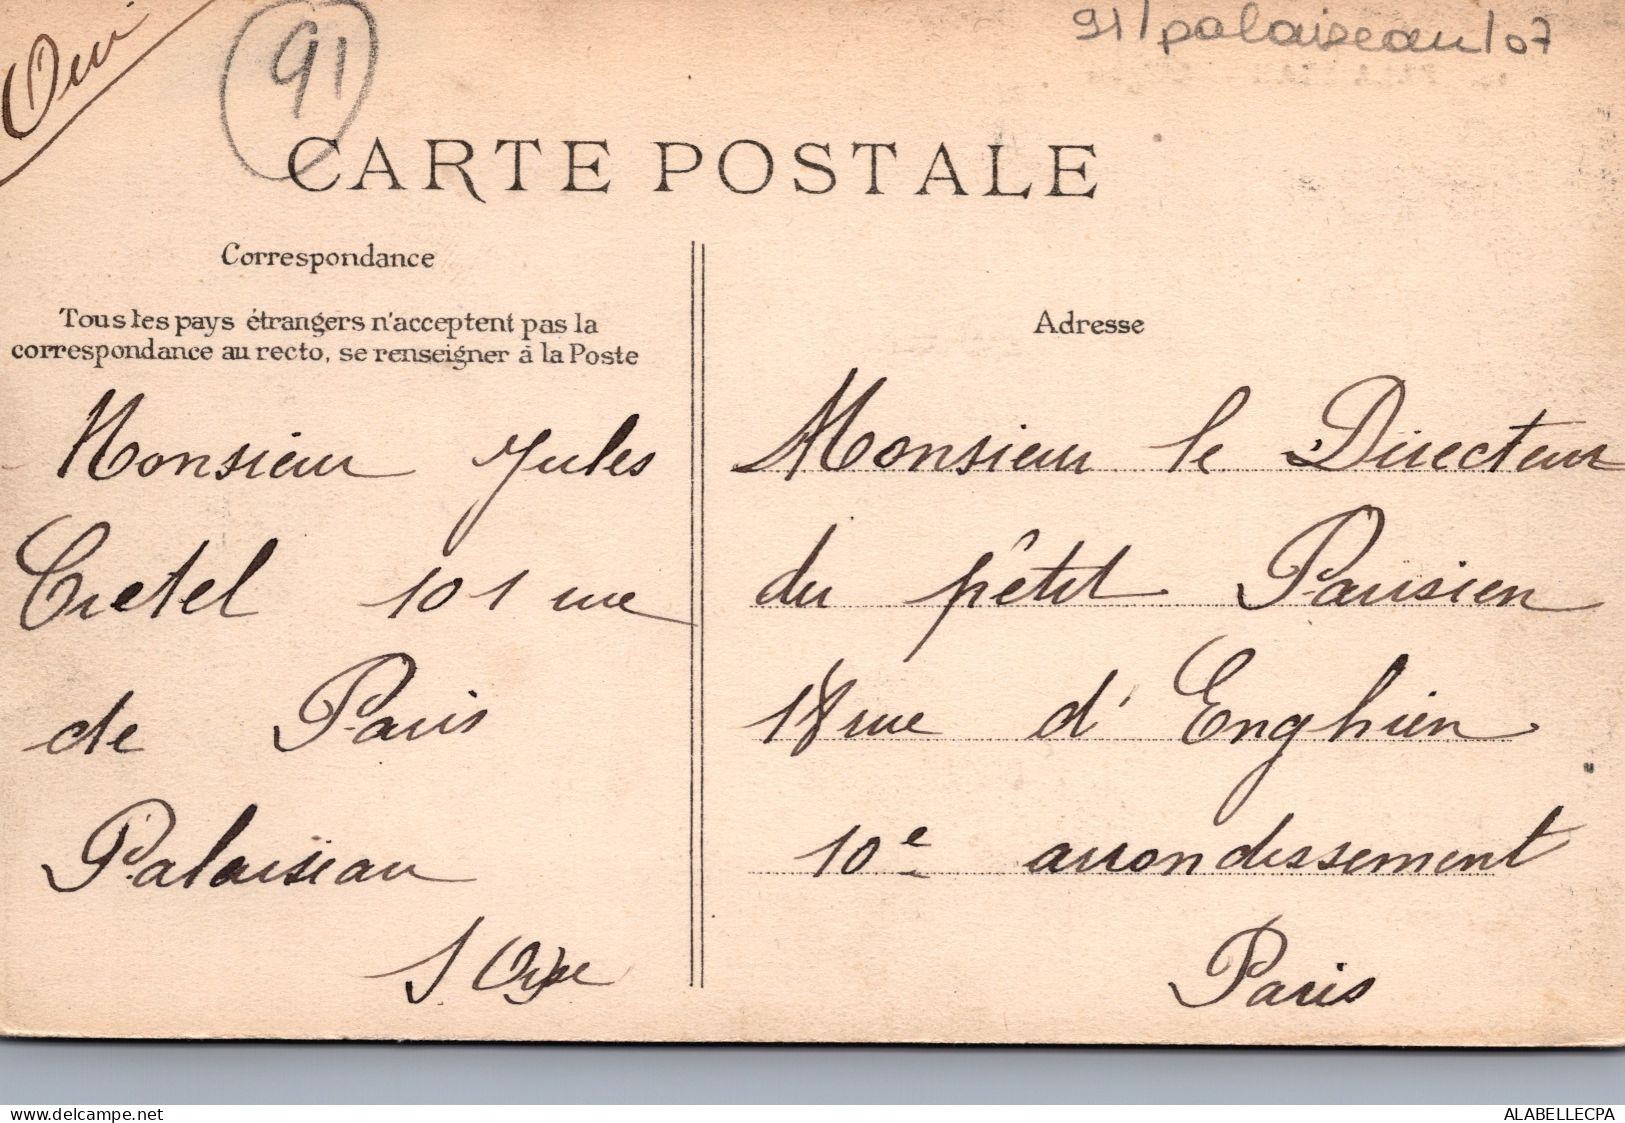 Oui
91
91/palaiseau/07
CARTE POSTALE
Correspondance
Tous les pays étrangers n'acceptent pas la
correspondance au recto, se renseigner à la Poste
Monsieur Jules
Cretel 101 rue
de Paris
Palaiseau
S Oise
Adresse
Monsieur le Directeur
du pêtit Parisien
18 rue d'Enghien
10e arrondissement
Paris
delcampe.net
ALABELLECPA